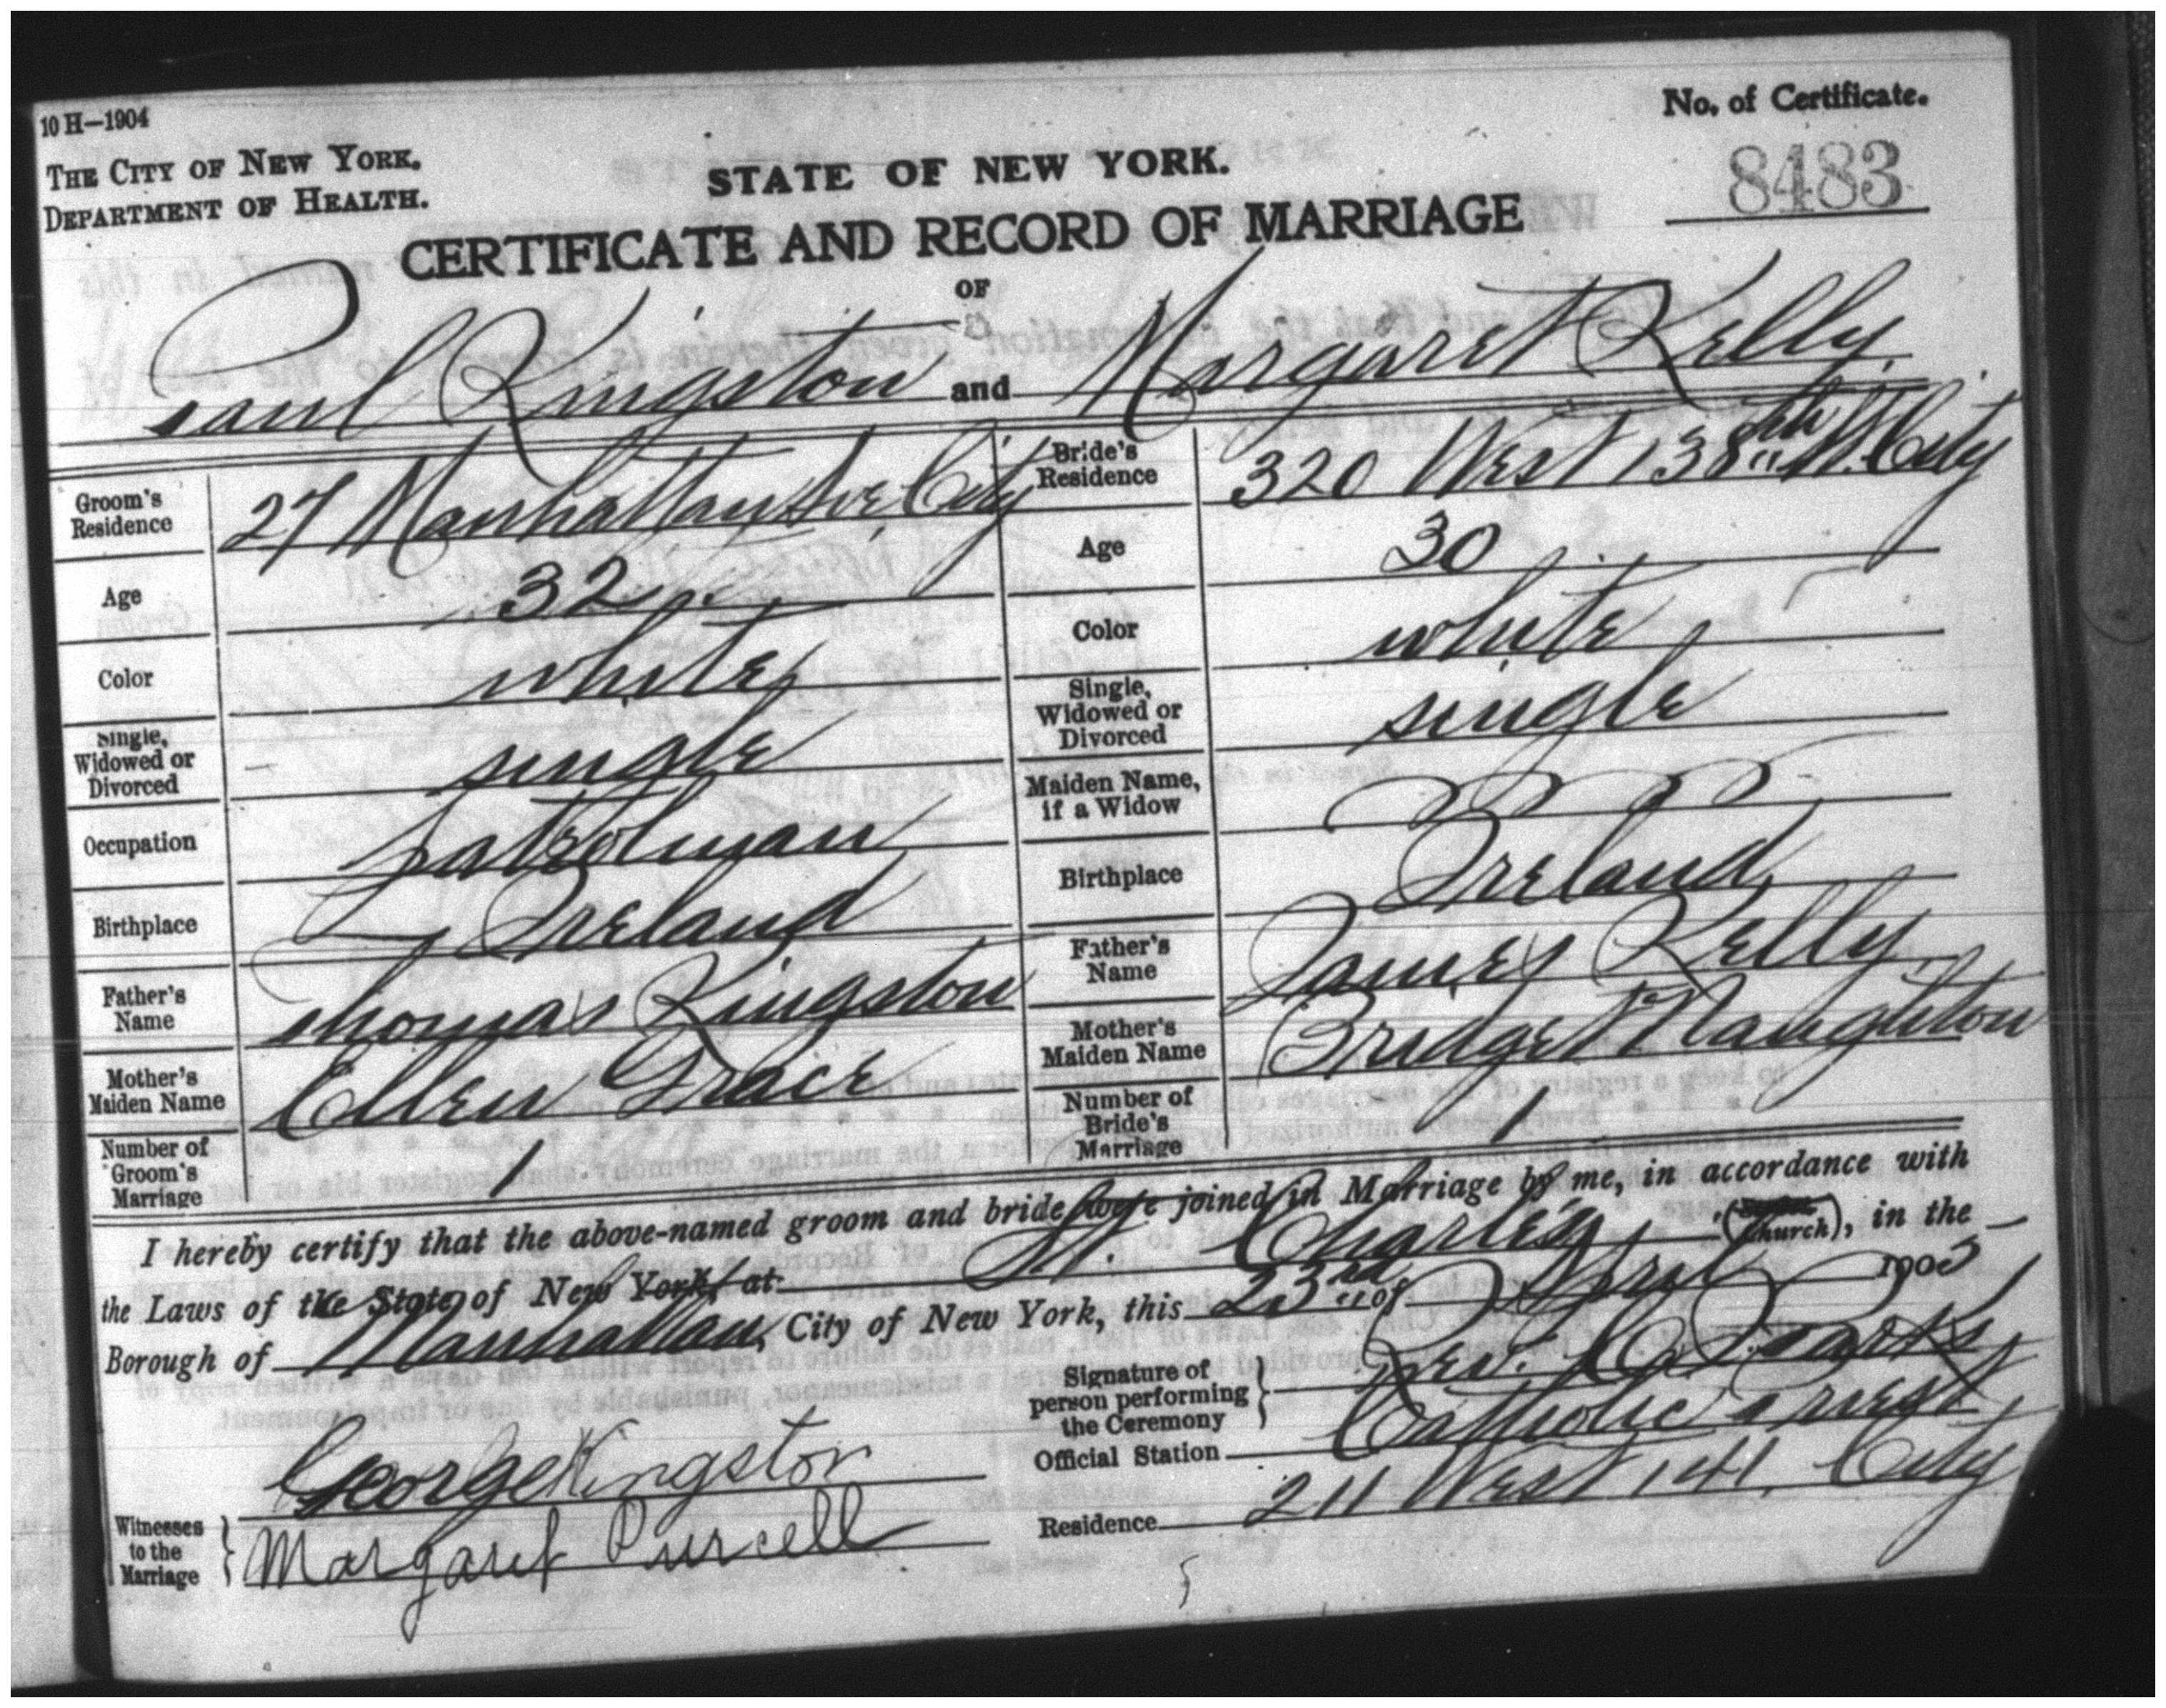 10 H—1904
No. of Certificate.
THE CITY OF NEW YORK.
DEPARTMENT OF HEALTH.
STATE OF NEW YORK.
8483
CERTIFICATE AND RECORD OF MARRIAGE
OF
Paul Kingston and Margaret Kelly
Groom's Residence 27 Manhattan Ave City
Bride's Residence 320 West 138th St. City
Age 32
Age 30
Color white
Color white
Single, Widowed or Divorced single
Single, Widowed or Divorced single
Occupation Patrolman
Maiden Name, if a Widow
Birthplace Ireland
Birthplace Ireland
Father's Name Thomas Kingston
Father's Name James Kelly
Mother's Maiden Name Ellen Grace
Mother's Maiden Name Bridget Naughton
Number of Groom's Marriage 1
Number of Bride's Marriage 1
I hereby certify that the above-named groom and bride were joined in Marriage by me, in accordance with
the Laws of the State of New York, at St. Charles (Church), in the
Borough of Manhattan, City of New York, this 23rd of April 190
Signature of person performing the Ceremony Rev.
Official Station Catholic Priest
Residence 211 West 141, City
Witnesses to the Marriage George Kingston
Margaret Purcell